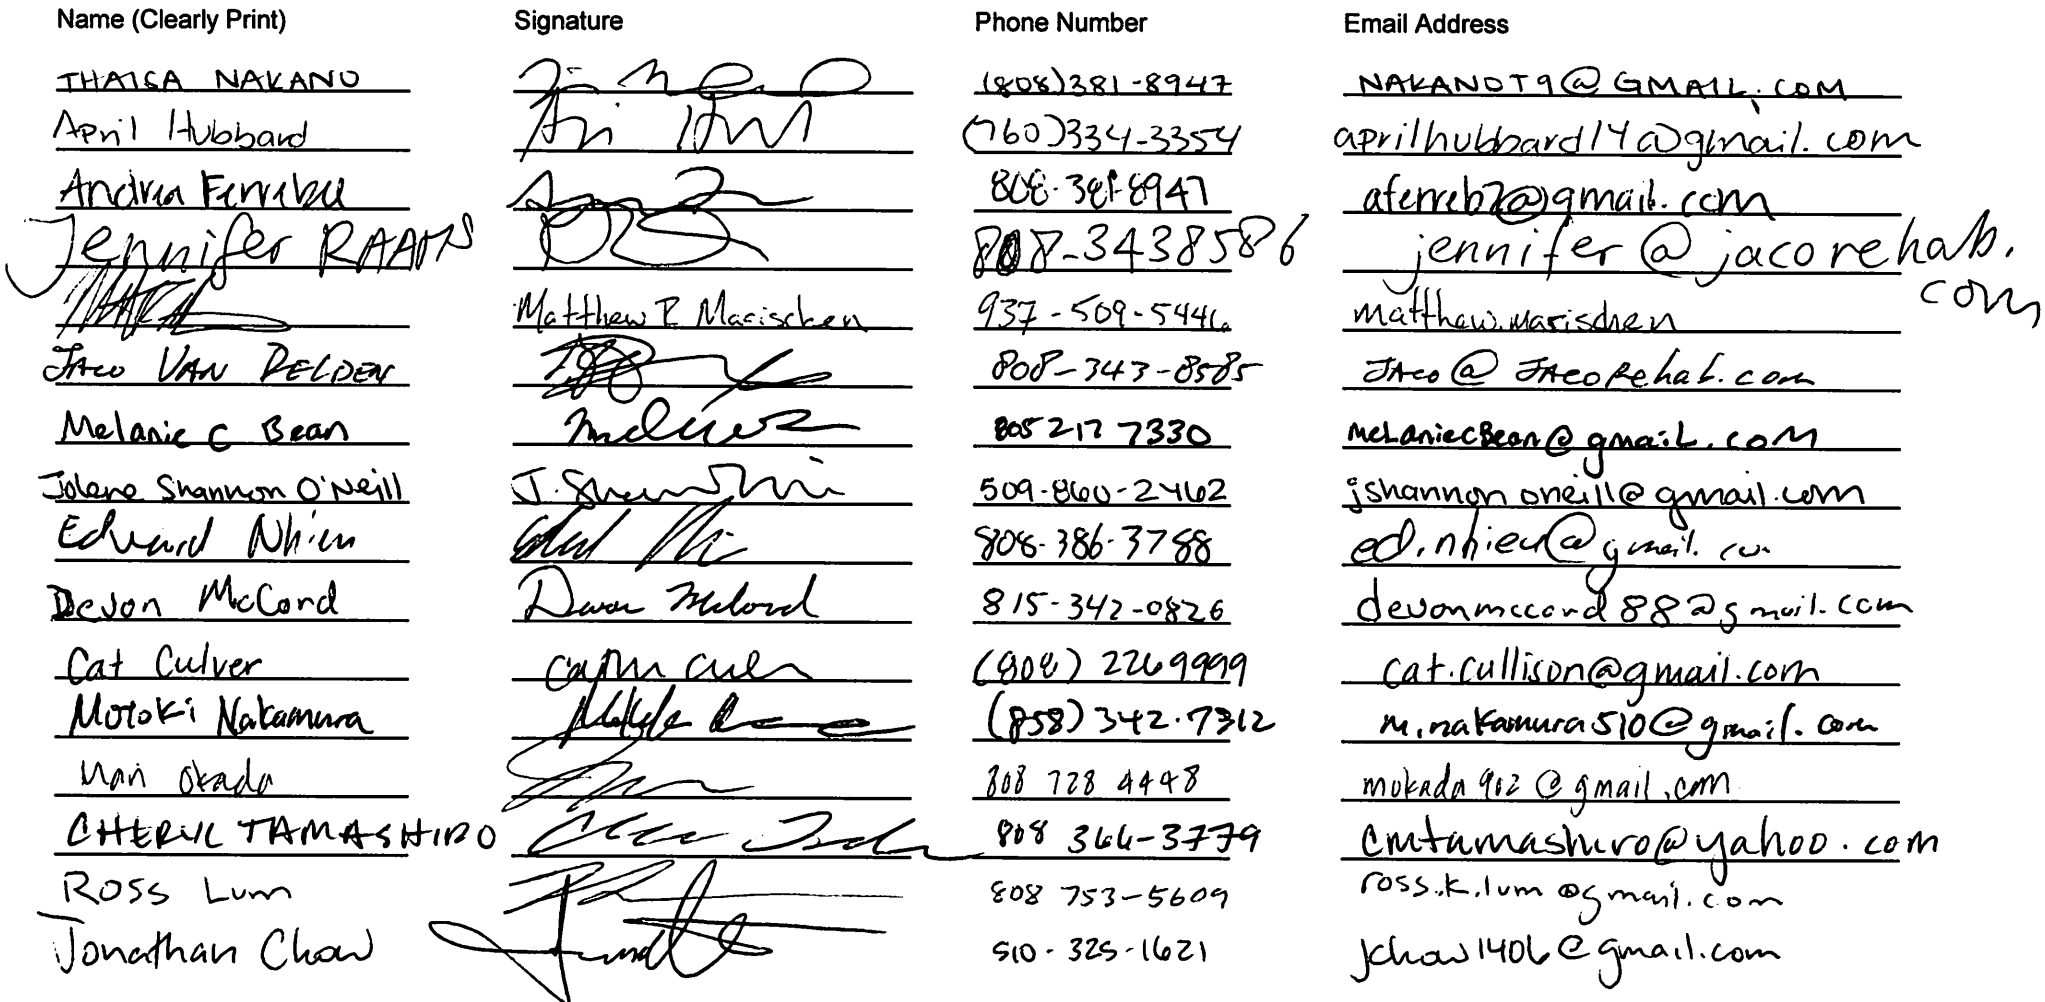 Name (Clearly Print) Signature Phone Number Email Address
THAISA NAKANO (808)381-8947 NAKANOT9@GMAIL.COM
April Hubbard (760)334-3354 aprilhubbard14@gmail.com
Andrea Ferrebee 808-381-8947 aferreb2@gmail.com
Jennifer RAAMS 808-3438586 jennifer@jacorehab.com
Matthew R Marischen 937-509-5446 matthew.marischen
JACO VAN DELDEN 808-343-8585 JACO@JACORehab.com
Melanie C Bean 805 217 7330 melaniecBean@gmail.com
Jolene Shannon O'Neill J. Shannon 509-860-2462 jshannononeill@gmail.com
Edward Nhieu 808-386-3788 ed.nhieu@gmail.co
Devon McCord Devon McCord 815-342-0826 devonmccord88@gmail.com
Cat Culver (808) 2269999 cat.cullison@gmail.com
Motoki Nakamura (858) 342-7312 m.nakamura510@gmail.com
Mari Okada 808 728 4448 mokada902@gmail.com
CHERYL TAMASHIRO 808 366-3779 cmtamashiro@yahoo.com
Ross Lum 808 753-5609 ross.k.lum@gmail.com
Jonathan Chow 510-325-1621 jchow1406@gmail.com